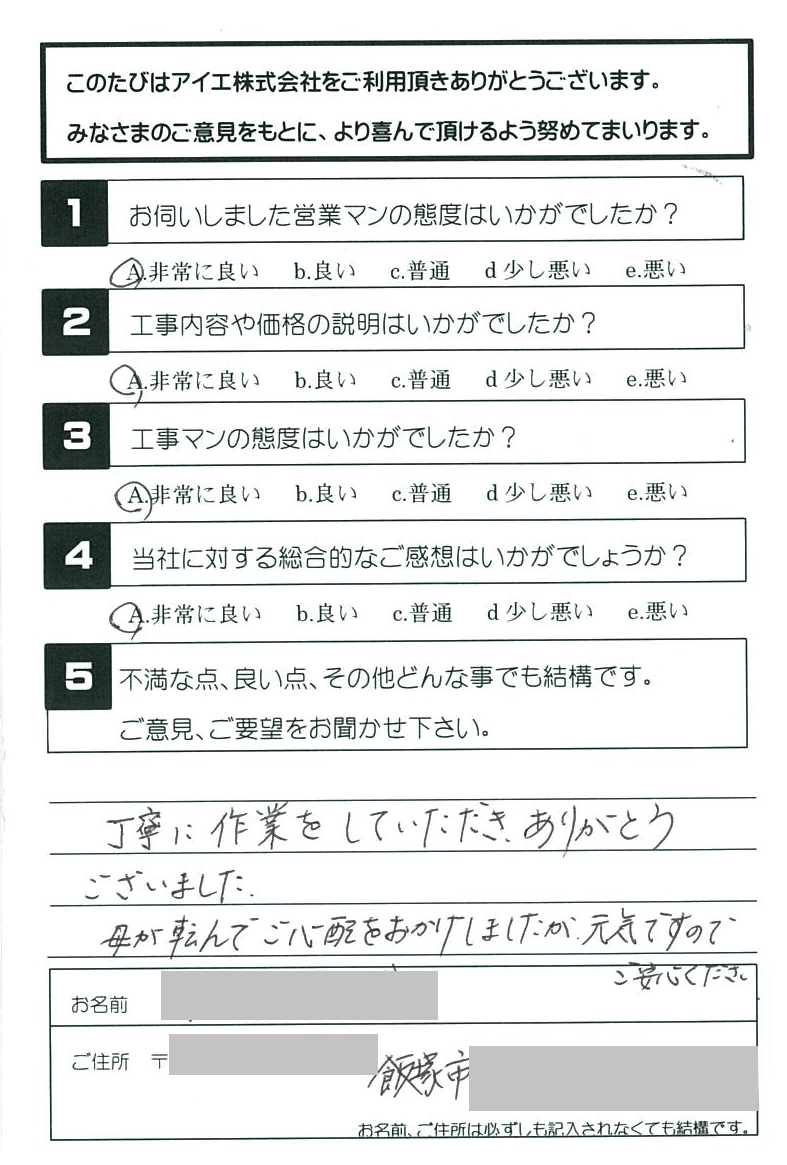 このたびはアイエ株式会社をご利用頂きありがとうございます。
みなさまのご意見をもとに、より喜んで頂けるよう努めてまいります。
1 お伺いしました営業マンの態度はいかがでしたか？
A.非常に良い b.良い c.普通 d 少し悪い e.悪い
2 工事内容や価格の説明はいかがでしたか？
A.非常に良い b.良い c.普通 d 少し悪い e.悪い
3 工事マンの態度はいかがでしたか？
A.非常に良い b.良い c.普通 d 少し悪い e.悪い
4 当社に対する総合的なご感想はいかがでしょうか？
A.非常に良い b.良い c.普通 d 少し悪い e.悪い
5 不満な点、良い点、その他どんな事でも結構です。
ご意見、ご要望をお聞かせ下さい。
丁寧に作業をしていただき、ありがとう
ございました.
母が転んでご心配をおかけしましたが、元気ですので
ご安心ください
お名前
ご住所 〒
飯塚市
お名前、ご住所は必ずしも記入されなくても結構です。